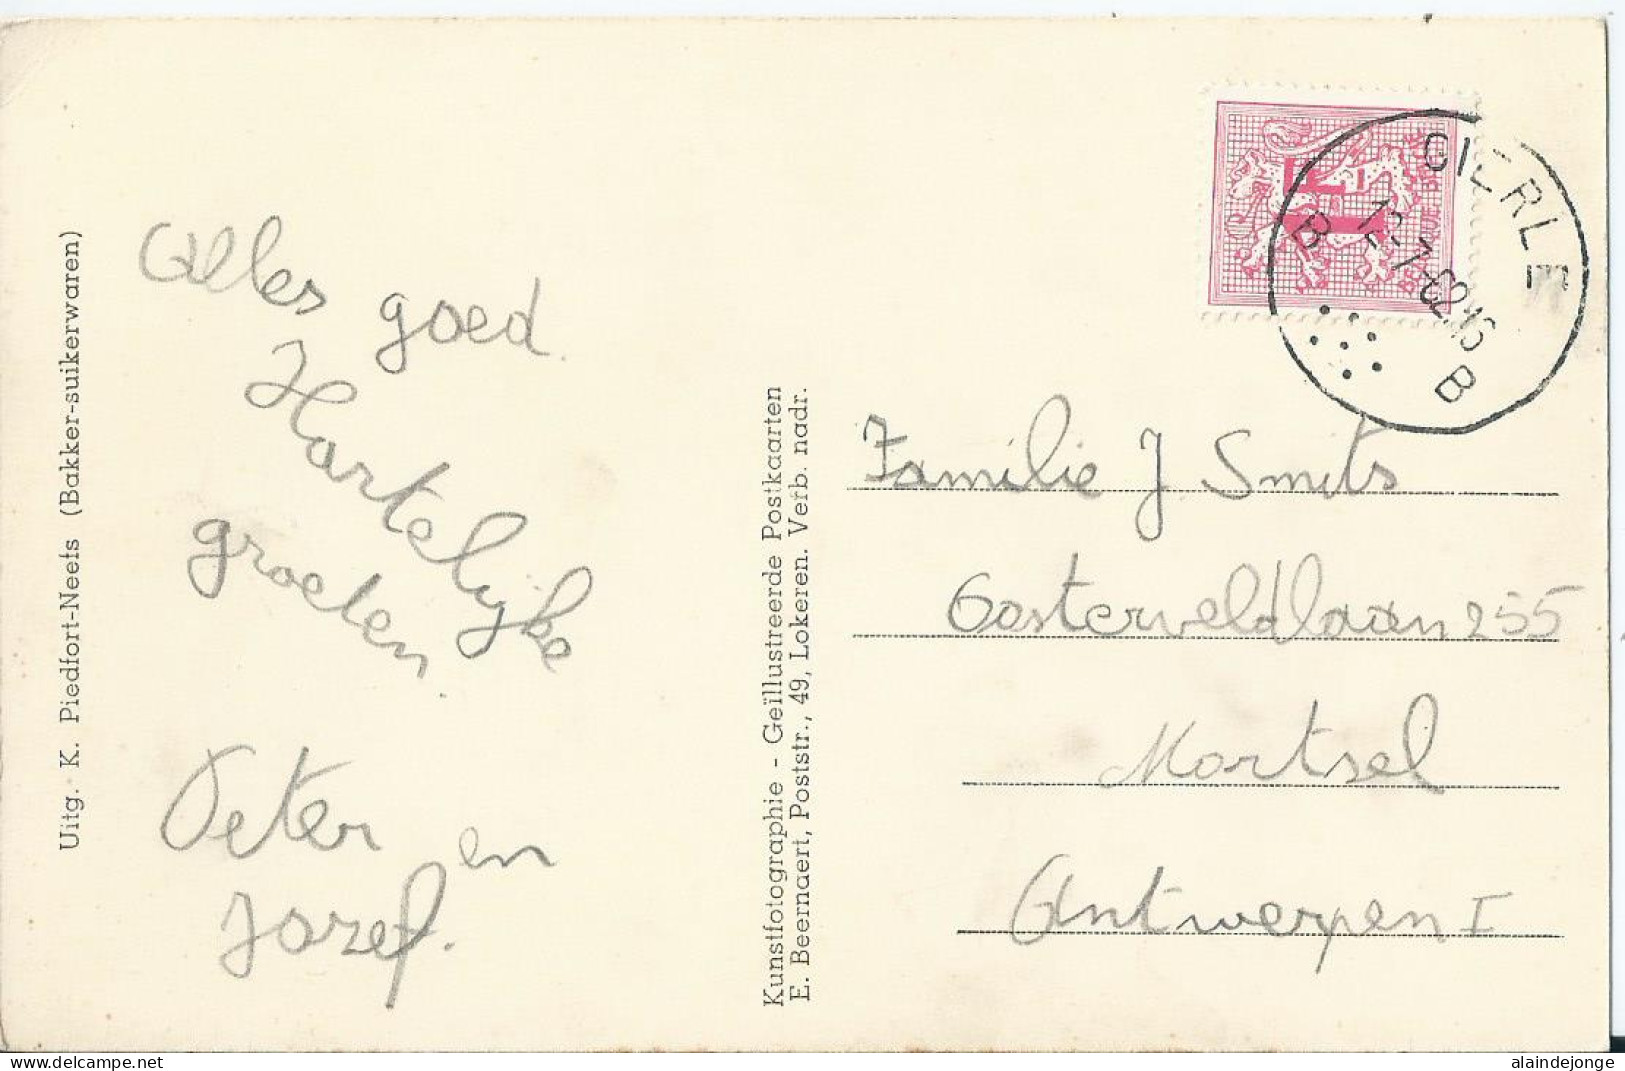 Uitg. K. Piedfort-Neefs (Bakker-suikerwaren)
Alles goed.
Hartelijke
groeten.
Peter en
Jozef.
Kunstfotographie - Geïllustreerde Postkaarten
E. Beernaert, Poststr., 49, Lokeren. Verb. nadr.
1F
BELGIQUE BELGIE
GIERLE
12-7-62 16
B B
Familie J Smits
Oosterveldlaan 255
Mortsel
Antwerpen I
www.delcampe.net
alaindejonge